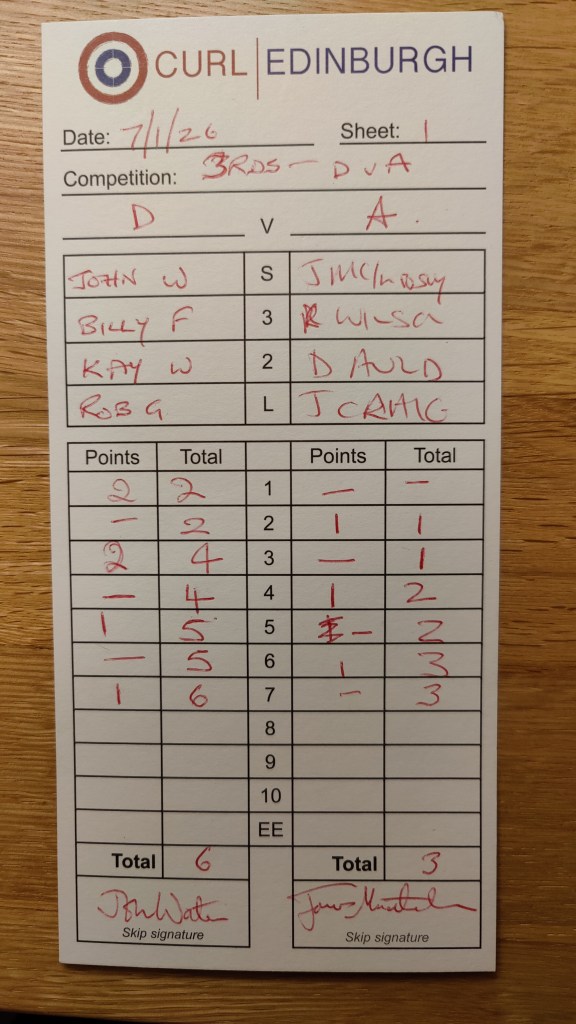 CURL EDINBURGH
Date: 7/1/26 Sheet: 1
Competition: 3RDS - D v A
D V A.
JOHN W S
BILLY F 3 WILSON
KAY W 2 D AULD
ROB G L J CRAIG
Points Total Points Total
2 2 1 - -
- 2 2 1 1
2 4 3 - 1
- 4 4 1 2
1 5 5 - 2
- 5 6 1 3
1 6 7 - 3
8
9
10
EE
Total 6 Total 3
John
Skip signature Skip signature